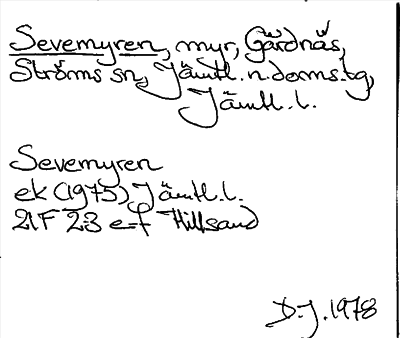 Sevemyren, myr, Gärdnäs,
Ströms sn, Jämtl. n. doms.tg,
Jämtl. l.
Sevemyren
ek (1975) Jämtl. l.
21F 2-3 e-f Hillsand
D.J. 1978